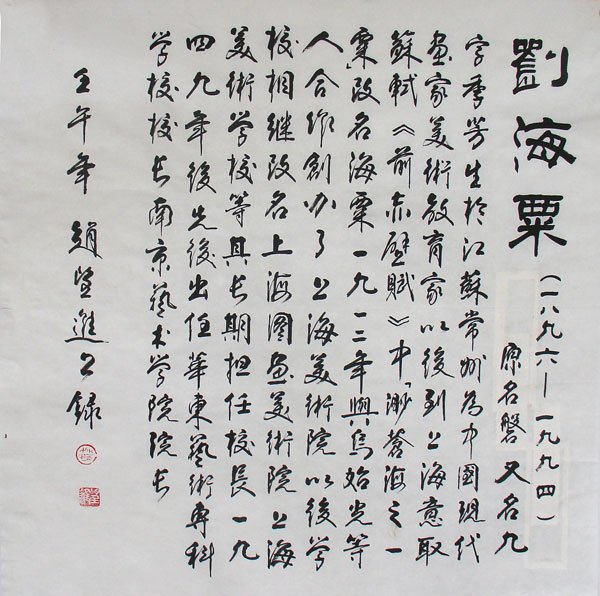 劉海粟（一八九六—一九九四）
原名磐 又名九
字季芳生於江蘇常州為中國現代
画家美術教育家以後到上海意取
蘇軾《前赤壁賦》中「渺蒼海之一
粟改名海粟一九一二年與烏始光等
人合作創办了上海美術院以後学
校相继改名上海图画美術院上海
美術学校等其长期担任校長一九
四九年後先後出任華東藝術專科
学校校长南京藝术学院院长
壬午年 趙望進 録